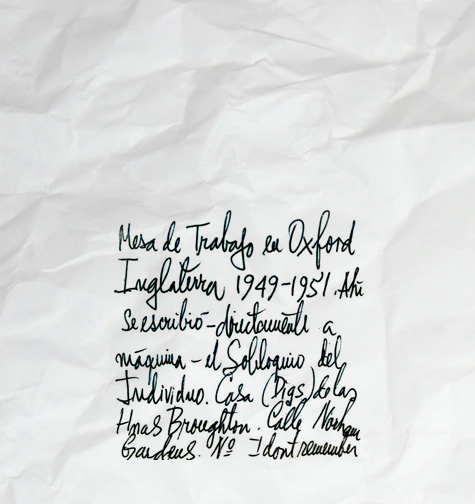 Mesa de Trabajo en Oxford
Inglaterra 1949-1951. Ahí
se escribió - directamente a
máquina - el Soliloquio del
Individuo. Casa (Digs) de las
Hnas Broughton. Calle Norham
Gardens. Nº I dont remember